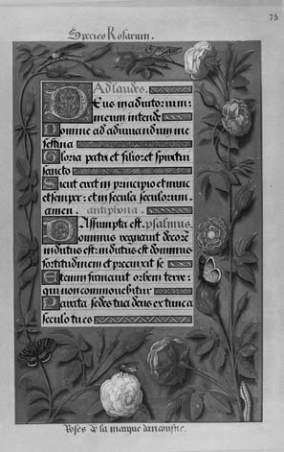 75
Species Rosarum.
Ad laudes.
Deus in adiutorium:
meum intende
Domine ad adiuuandum me
festina
Gloria patri et filio: et spiritui
sancto
Sicut erat in principio et nunc
et semper: et in secula seculorum.
amen. antiphona.
Assumpta est. psalmus.
Dominus regnauit decorē
indutus est: indutus est dominus
fortitudinem et precinxit se
Etenim firmauit orbem terre:
qui non commouebitur
Parata sedes tua deus ex tunc a
seculo tu es
Roses de la